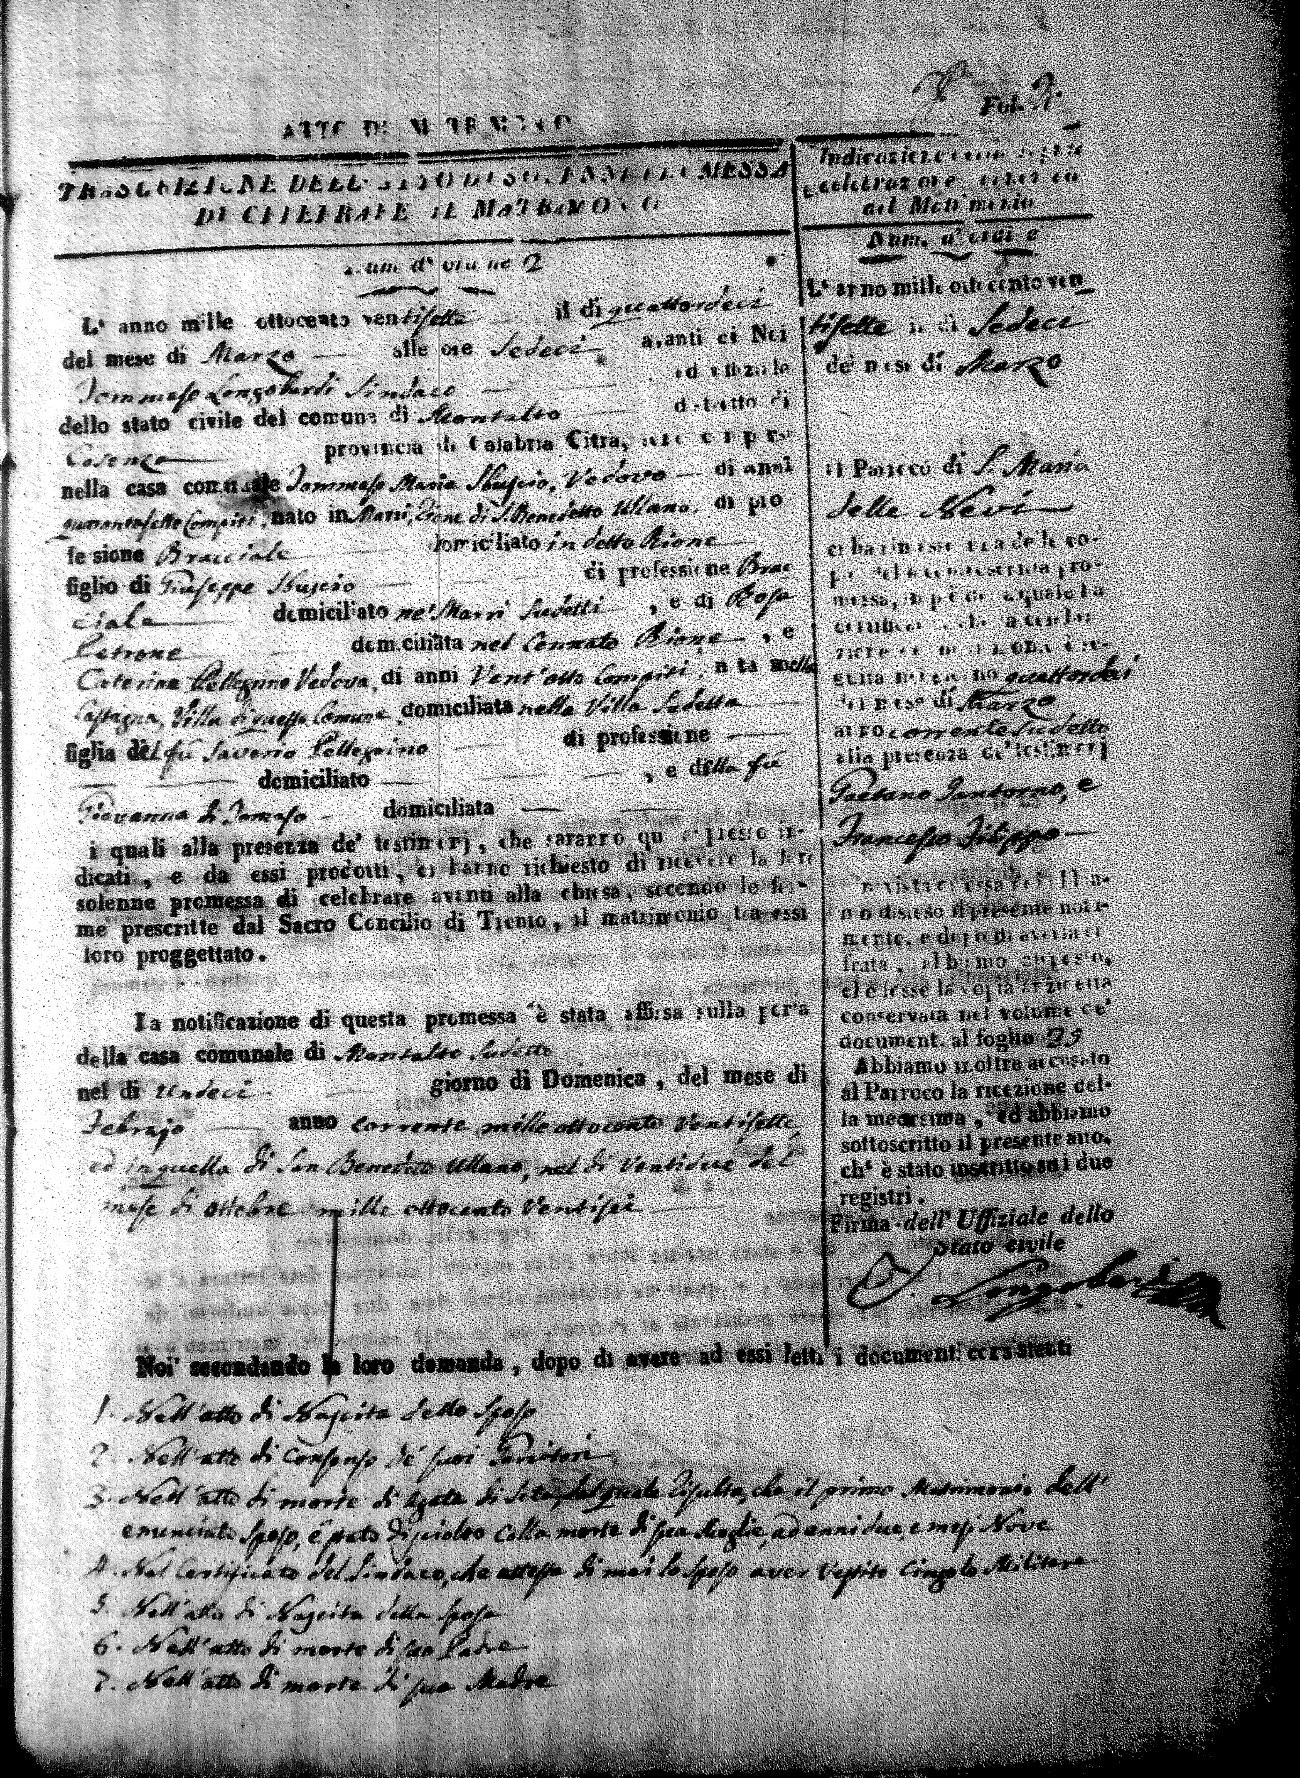 Fol. 2.
ATTO DI MATRIMONIO
TRASCRIZIONE DELL'ATTO DI SOLENNE PROMESSA
DI CELEBRARE IL MATRIMONIO
Num. d'ordine 2
L' anno mille ottocento ventisette il dì quattordeci
del mese di Marzo alle ore Sedeci avanti di Noi
Tommaso Longobardi Sindaco ed uffiziale
dello stato civile del comune di Montalto distretto di
Cosenza provincia di Calabria Citra,
nella casa comunale Tommaso Maria Vedovo di anni
quarantasette Compiti, nato in Marri, Rione di S. Benedetto Ullano, di pro
fessione Bracciale domiciliato in detto Rione
figlio di Giuseppe di professione Brac
ciale domiciliato ne' Marri sudetti, e di Rosa
Petrone domiciliata nel Cennato Rione, e
Caterina Pellegrino Vedova, di anni Vent'otto Compiti, nata nella
Castagna, Villa di questo Comune, domiciliata nella Villa sudetta
figlia del fu Saverio Pellegrino di professione
domiciliato , e della fu
Giovanna di Tomaso domiciliata
i quali alla presenza de' testimonj, che saranno qui appresso in-
dicati, e da essi prodotti, ci hanno richiesto di ricevere la loro
solenne promessa di celebrare avanti alla chiesa, secondo le for-
me prescritte dal Sacro Concilio di Trento, il matrimonio tra essi
loro proggettato.
La notificazione di questa promessa è stata affissa sulla porta
della casa comunale di Montalto sudetto
nel dì Undeci giorno di Domenica, del mese di
Febrajo anno corrente mille ottocento Ventisette,
ed in quella di San Benedetto Ullano, nel dì Ventidue del
mese di ottobre mille ottocento Ventisei
Indicazione della seguita
celebrazione canonica
del Matrimonio
Num. d'ordine
L' anno mille ottocento ven
tisette il dì Sedeci
del mese di Marzo
il Parroco di S. Maria
delle Nevi
ci ha rimessa una delle co-
pie della sudetta pro-
messa, in piedi a quale ha
guita nel giorno quattordeci
del mese di Marzo
anno corrente sudetto
alla presenza de' testimonj
Gaetano Santorno, e
Francesco Filippo
no disteso il presente notamento
mente, e dopo di averla ci-
frata, abbiamo disposto,
che fosse la copia anzidetta
conservata nel volume de'
document. al foglio 25
Abbiamo inoltre accusato
al Parroco la ricezione del-
la medesima, ed abbiamo
sottoscritto il presente atto,
ch' è stato inscritto su i due
registri.
Firma dell' Uffiziale dello
Stato civile
T. Longobardi
Noi secondando la loro domanda, dopo di avere ad essi letti i documenti consistenti
1. Nell'atto di Nascita dello sposo
2. Nell'atto di Consenso de' suoi Genitori
3. Nell'atto di morte di Agata di dal quale risulta, che il primo Matrimonio dell'
enunciato sposo, è stato disciolto colla morte di sua Moglie, ad anni due, e mesi Nove
4. Nel Certificato del Sindaco, che attesta di mai lo sposo aver vestito Cingolo Militare
5. Nell'atto di Nascita della sposa
6. Nell'atto di morte di suo Padre
7. Nell'atto di morte di sua Madre